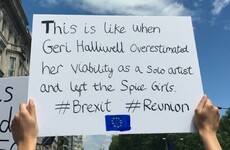 This is like when
Geri Halliwell overestimated
her viability as a solo artist
and left the Spice Girls.
#Brexit #Reunion